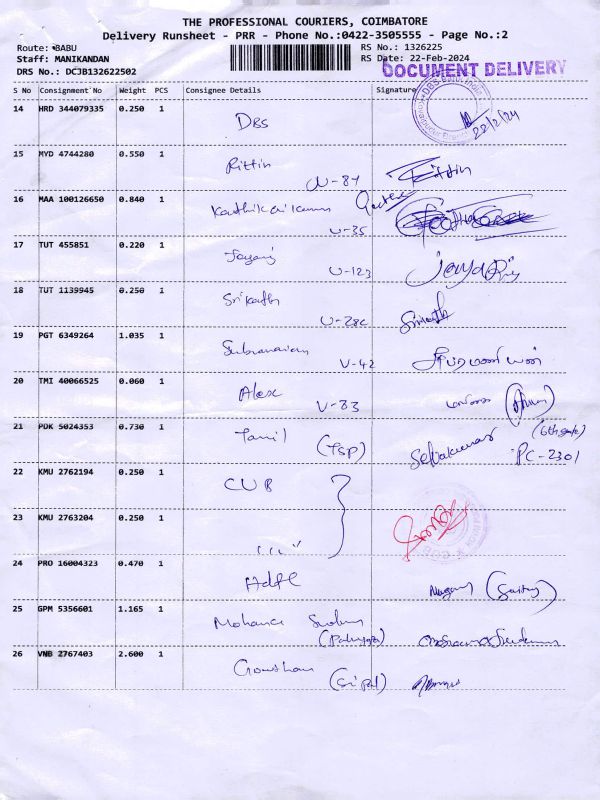 THE PROFESSIONAL COURIERS, COIMBATORE
Delivery Runsheet - PRR - Phone No.:0422-3505555 - Page No.:2
Route: BABU RS No.: 1326225
Staff: MANIKANDAN RS Date: 22-Feb-2024
DRS No.: DCJB132622502 DOCUMENT DELIVERY
S No Consignment No Weight PCS Consignee Details Signature
14 HRD 344079335 0.250 1 DBS 22/2/24
15 MYD 4744280 0.550 1 Rittin U-87 Rittin
16 MAA 100126650 0.840 1 U-35
17 TUT 455851 0.220 1 U-123
18 TUT 1139945 0.250 1 Srikanth Srinath
19 PGT 6349264 1.035 1 V-42
20 TMI 40066525 0.060 1 Alex V-83
21 PDK 5024353 0.730 1 Tamil (TSP) Selvakumar (6th gate) PC-2301
22 KMU 2762194 0.250 1 CUB
23 KMU 2763204 0.250 1
24 PRO 16004323 0.470 1 Hdfc
25 GPM 5356601 1.165 1
26 VNB 2767403 2.600 1 Gowtham